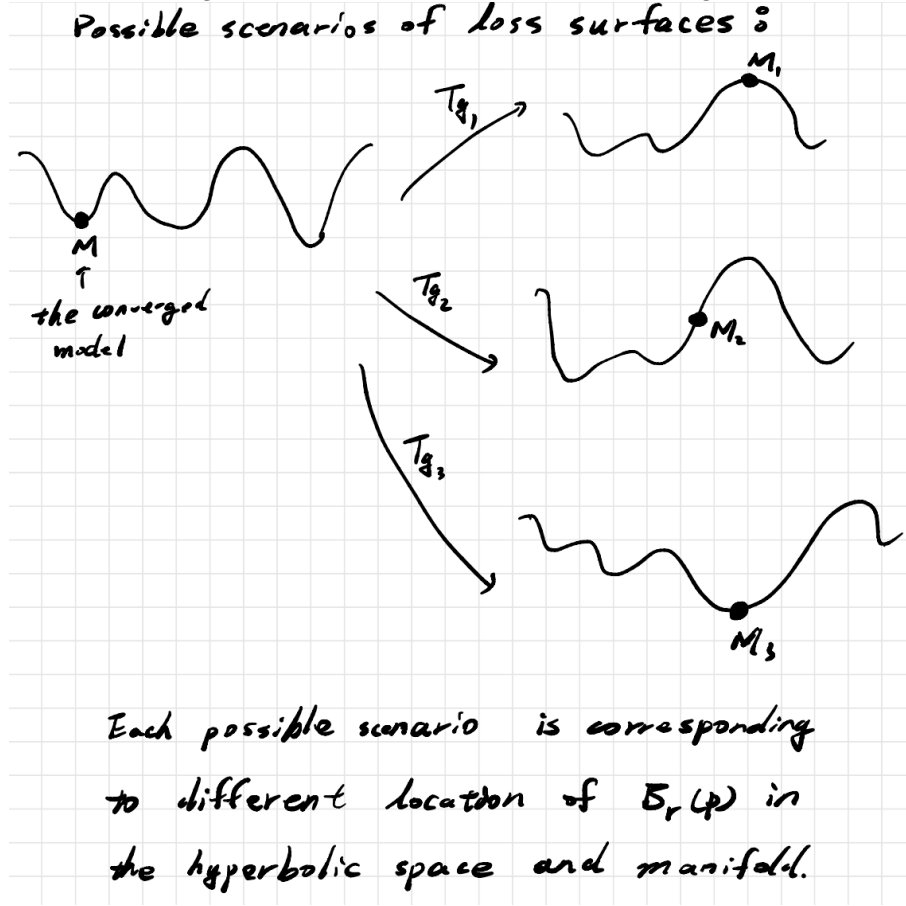 Possible scenarios of loss surfaces:
M₁
Tg₁
M
↑
the converged
model
Tg₂
M₂
Tg₃
M₃
Each possible scenario is corresponding
to different location of Bᵣ(p) in
the hyperbolic space and manifold.